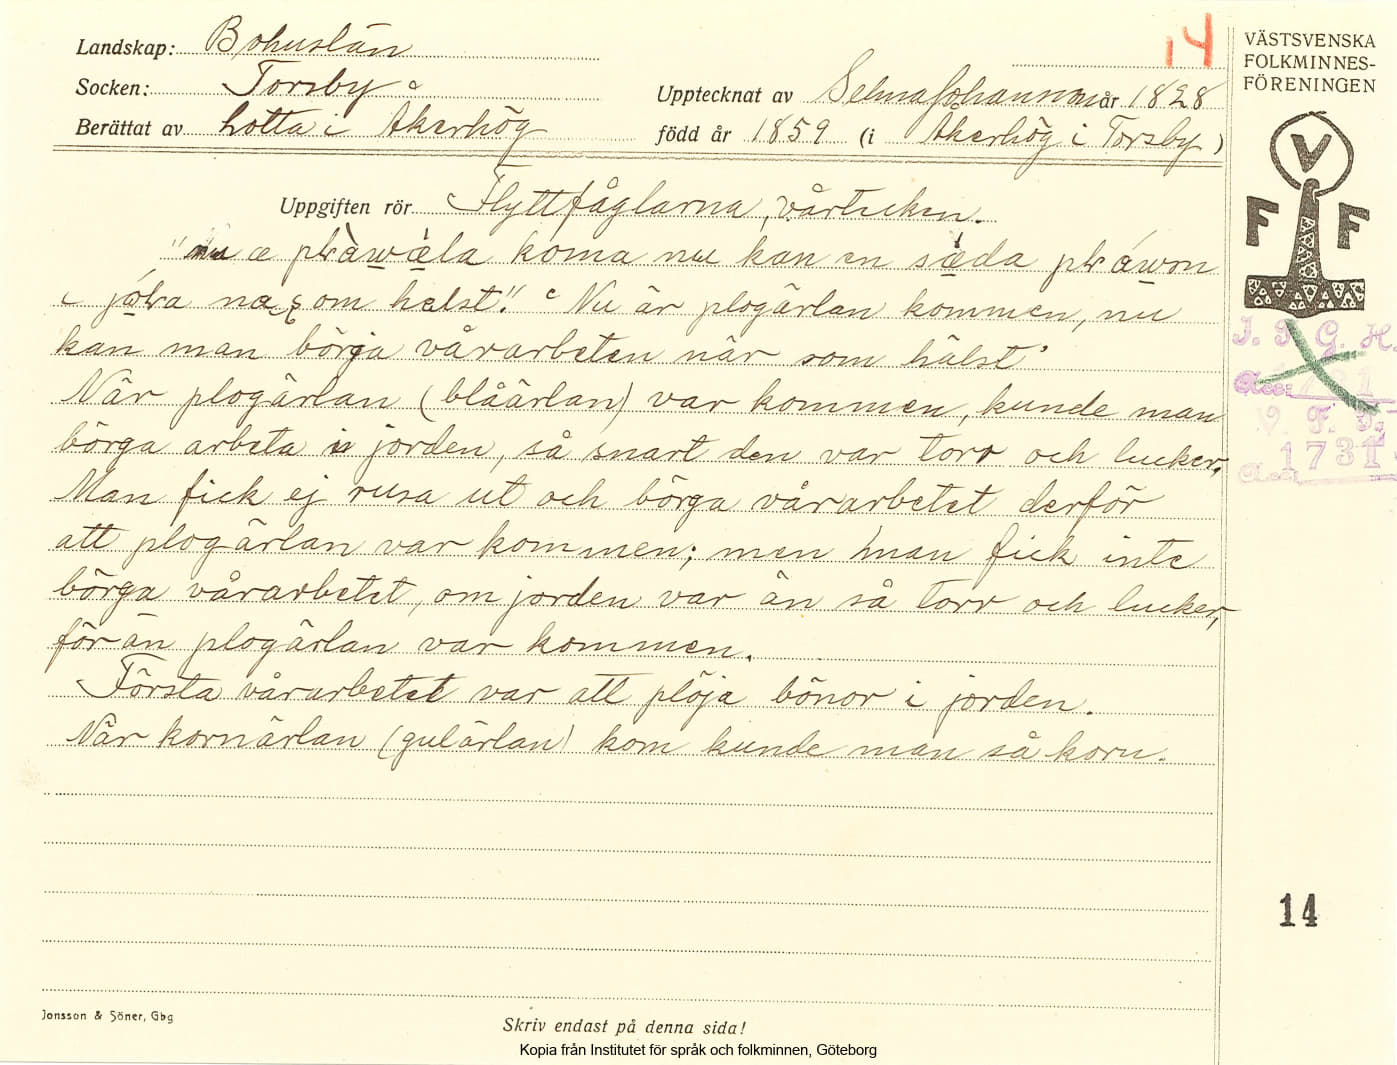 14
Landskap: Bohuslän
Socken: Torsby
Upptecknat av Selma Johansson år 1828
Berättat av Lotta i Åkerhög
född år 1859 (i Åkerhög i Torsby)
VÄSTSVENSKA
FOLKMINNES-
FÖRENINGEN
V
F F
Uppgiften rör Flyttfåglarna, vårtecken.
koma nu kan en
helst". "Nu är plogärlan kommen, nu
kan man börga vårarbeten när som hälst"
När plogärlan (blåärlan) var kommen, kunde man
börga arbeta i jorden, så snart den var torr och lucker.
Man fick ej rusa ut och börga vårarbetet derför
att plogärlan var kommen; men man fick inte
börga vårarbetet, om jorden var än så torr och lucker,
för än plogärlan var kommen.
Första vårarbetet var att plöja bönor i jorden.
När kornärlan (gulärlan) kom kunde man så korn.
V. F. F.
1731
14
Jonsson & Söner, Gbg
Skriv endast på denna sida!
Kopia från Institutet för språk och folkminnen, Göteborg